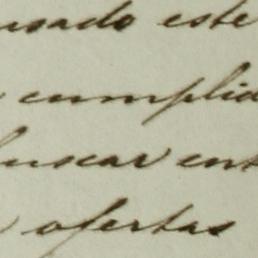 usado este
cumplid
buscar ent
ofertas